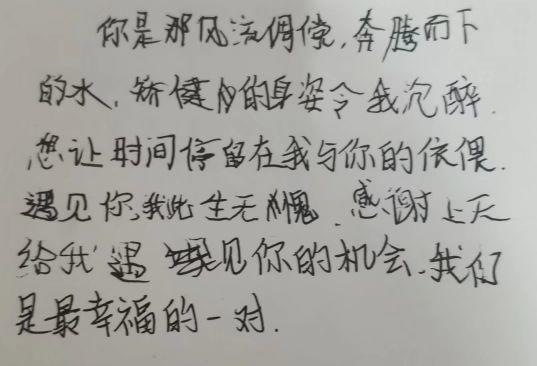 你是那风流倜傥，奔腾而下
的水，矫健的身姿令我沉醉．
想让时间停留在我与你的依偎．
遇见你，我此生无愧．感谢上天
给我遇见你的机会．我们
是最幸福的一对．